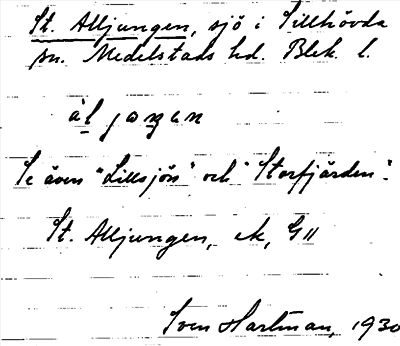 St. Alljungen, sjö i Tillhövda
sn. Medelstads hd. Blek. l.
Se även "Lillsjön" och "Storfjärden".
St. Alljungen, ek, G11
Sven Hartman, 1930